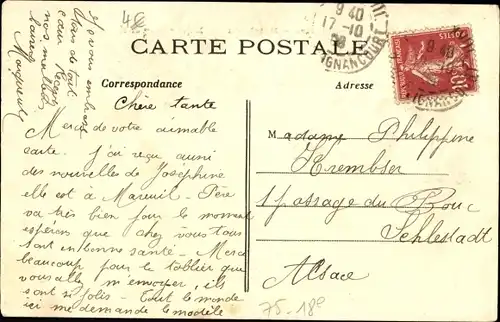 4€
9 40
17-10
08
IGNANCOURT
CARTE POSTALE
Correspondance
Adresse
Je vous embrasse
tous de tout
cœur
nos meilleurs
baisers
Marguerite
Chère tante
Merci de votre aimable
carte. J'ai reçu aussi
des nouvelles de Joséphine
elle est à Mareuil - Père
va très bien pour le moment
espérons que chez vous tous
sont en bonne santé - Merci
beaucoup pour le tablier que
vous allez m'envoyer, ils
sont si jolis - Tout le monde
ici me demande le modèle
Madame Philippine
Krembser
1 passage du Bouc
Schlestadt
Alsace
75-18e